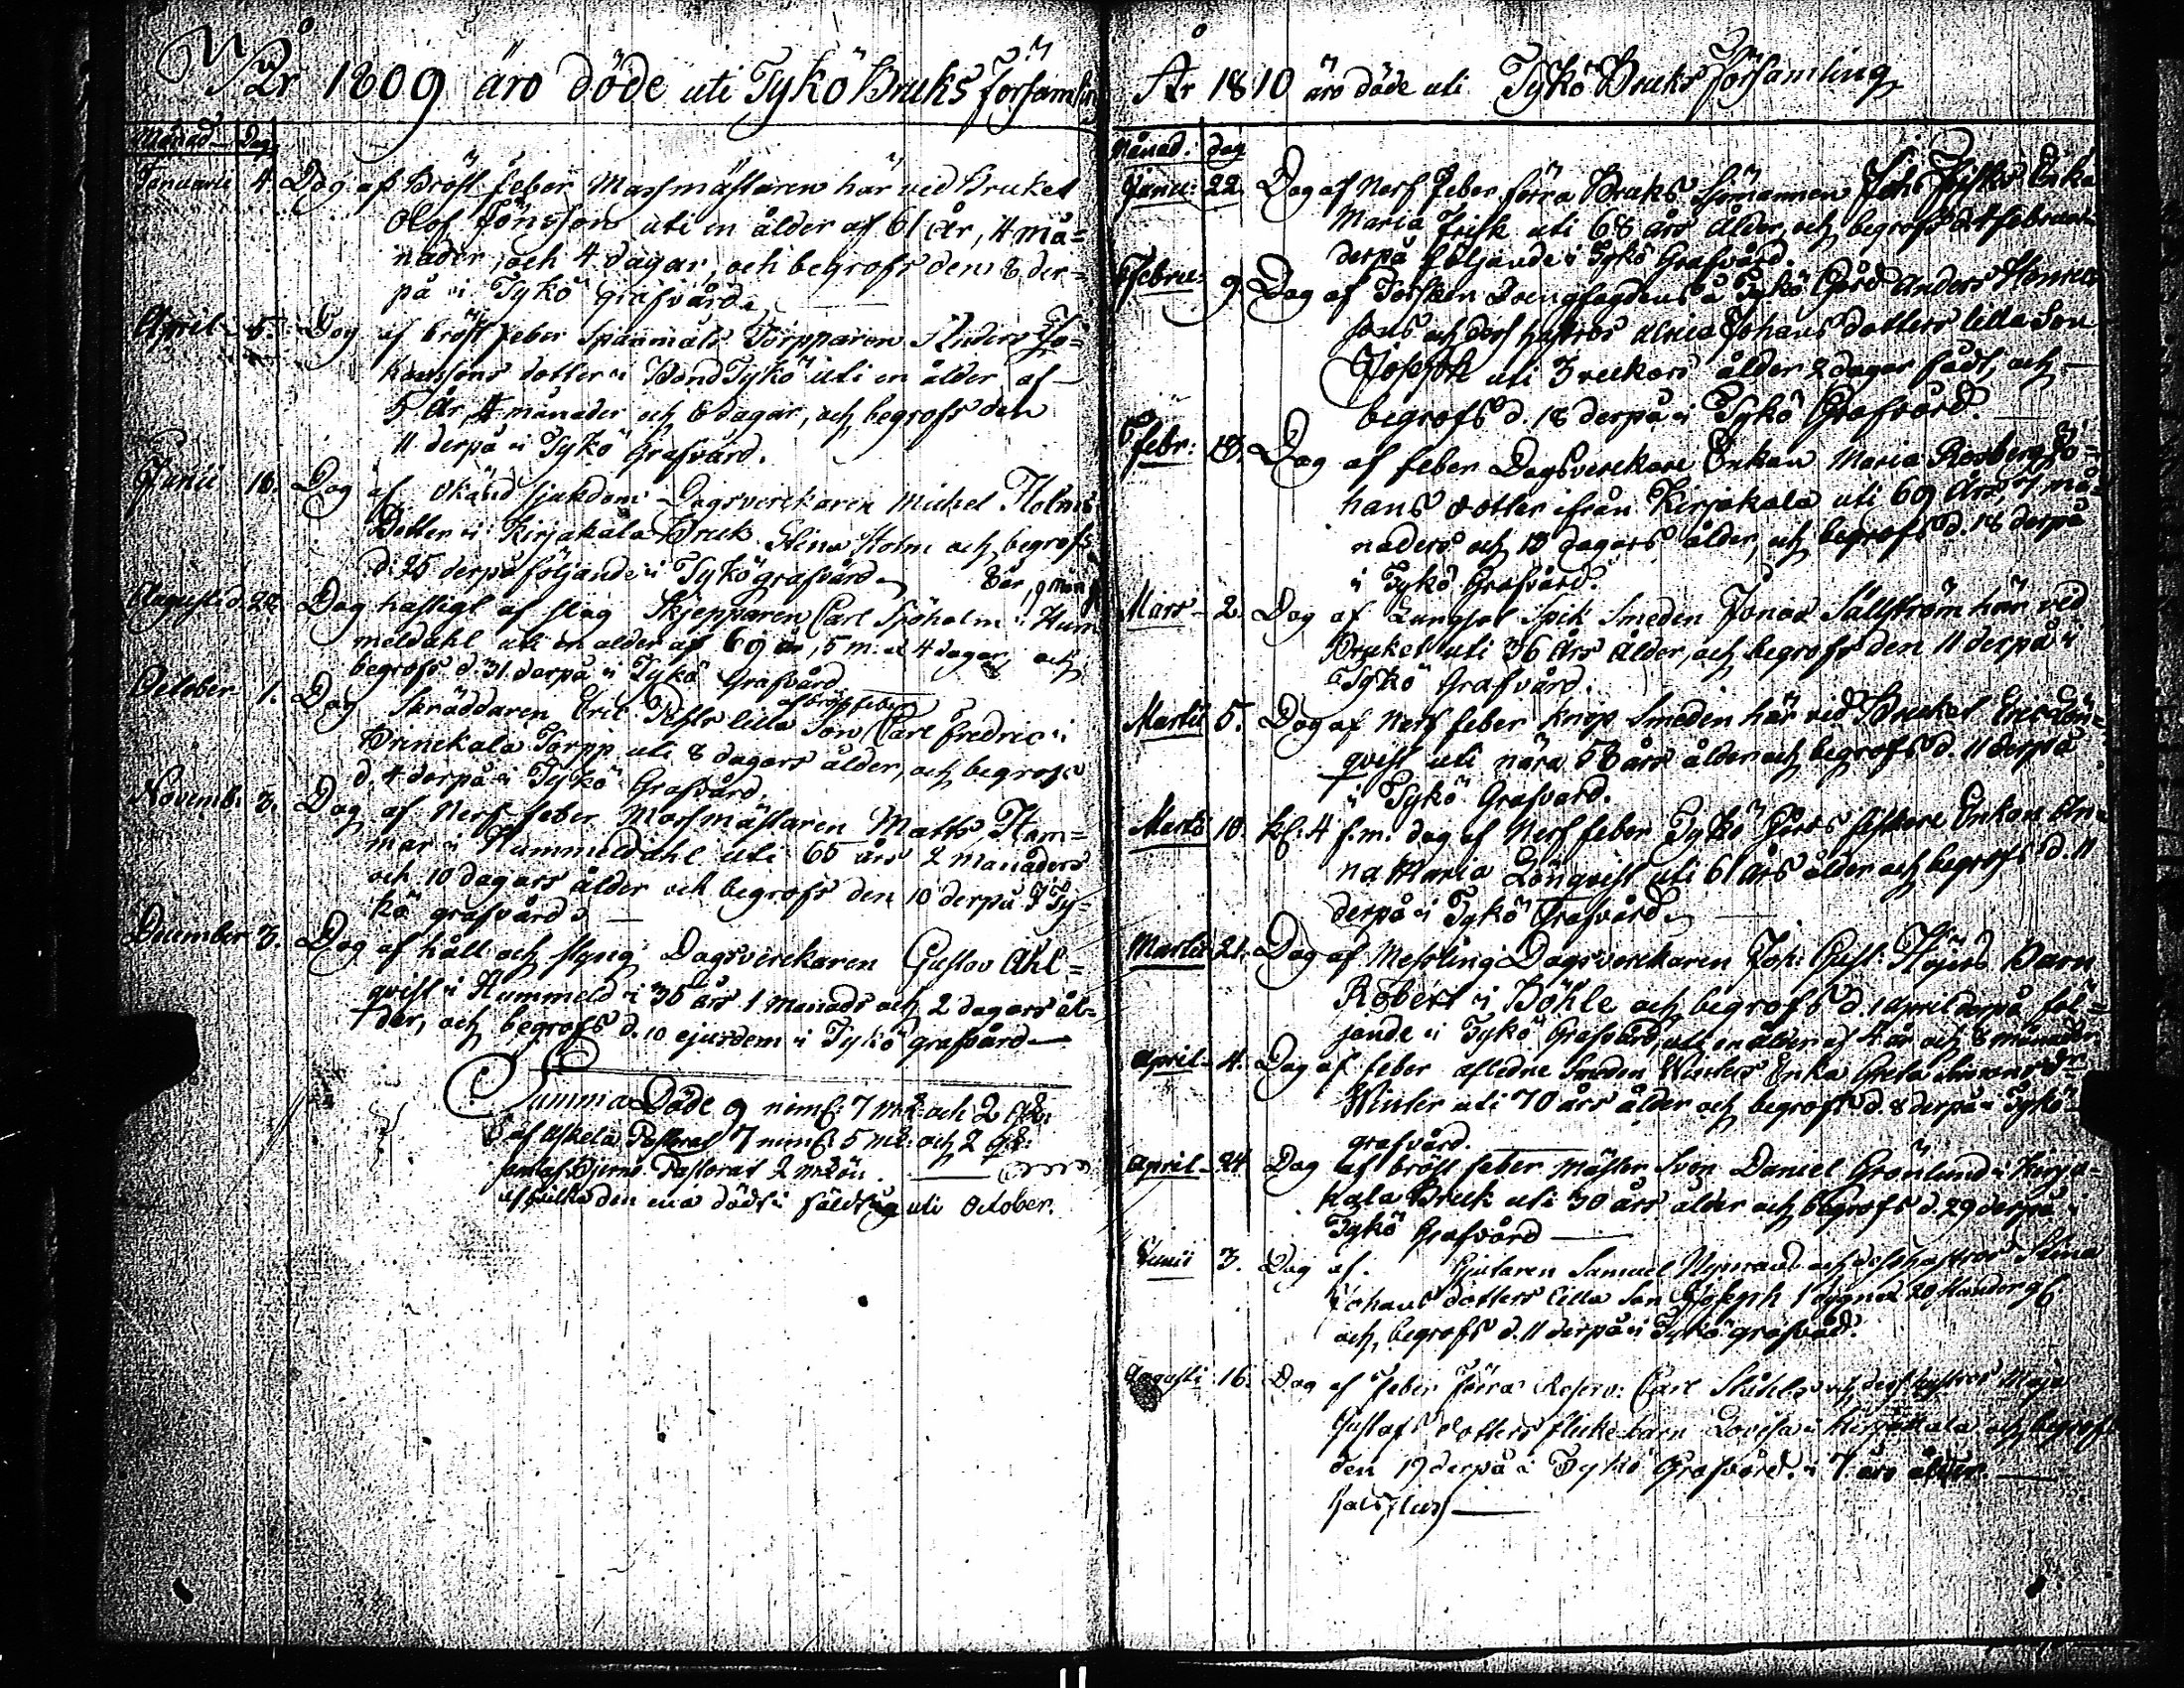 År 1809 äro döde uti Tykö Bruks Församlin
Månad Dag
Januarii 4. Dog af Bröst feber Masmästaren här vid Bruket
Olof Jönsson uti en ålder af 61 År, 4 må=
nader, och 4 dagar, och begrofs den 8 der=
på i Tykö grafvård.
April 5. Dog af bröst feber Spanmåls Torpparen Anders Jo=
hanssons dotter i Bond Tykö uti en ålder af
5 År, 4 månader och 6 dagar, och begrofs den
11 derpå i Tykö Grafvård.
Junii 18. Dog af Okänd sjukdom Dagsverckaren Michel Holms
Dotter i Kirjakala Bruk Elina Holm och begrofs
d. 25 derpå följande i Tykö grafvård 8 år, 9 mån
Augusti d. 24. Dog hastigt af slag Skjepparen Carl Sjöholm i Hum
meldahl uti en ålder af 69 år, 5 m. och 4 dagar, och
begrofs d. 31. derpå i Tykö Grafvård
af bröst feber
October 1. Dog Skräddaren Eric lilla Son Carl Fredric i
Torpp uti 8 dagars ålder, och begrofs
d. 4 derpå i Tykö Grafvård.
Novemb: 3. Dog af Nerf feber Masmästaren Matts Ham=
mar i Hummeldahl uti 65 års 2 Månaders
och 10 dagars ålder och begrofs den 10 derpå i Ty=
kö grafvård
December 3. Dog af håll och styng Dagsverckaren Gustav Ahl=
qvist i Hummeld i 35 års 1 Månads och 2 dagars ål=
der, och begrofs d. 10 ejusdem i Tykö grafvård
Summa Döde 9 neml: 7 mk: och 2 qk:
af Uskela Pastorat 7 neml: 5 mk: och 2 qk:
samt af Bjerno Pastorat 2 mkön
af hvilka den ena dödt i fält uti October.
År 1810 äro döde uti Tykö Bruks Församling
Månad. dag
Janu: 22. Dog af Nerf Feber förra Bruks Sjömannen Johs Frisks Enka
Maria Frisk uti 68 års ålder, och begrofs d. 4 Februarii
derpå följande i Tykö Grafvård.
Febru: 9. Dog af Torsken Drengfogdens å Tykö Gård Anders Henrics
sons och dess hustrus Ulrica Johans dotters lilla Son
Joseph uti 3 veckors ålder 2 dagar fådt, och
begrofs d. 18 derpå i Tykö Grafvård.
Febr: 13. Dog af feber Dagsverckare Enkan Maria Rosberg Jo=
hans dotter ifrån Kirjakala uti 69 Års, 7 må=
naders och 13 dagars ålder, och begrofs d. 18 derpå
i Tykö Grafvård.
Mars 2. Dog af Lungsot Spik Smeden Jonas Sällström här vid
Bruket uti 36 Års Ålder, och begrofs den 11 derpå i
Tykö Grafvård.
Martii 5. Dog af Nerf feber Knip Smeden här vid Bruket Eric Lön=
qvist uti nära 58 års ålder och begrofs d. 11 derpå
i Tykö Grafvard.
Martii 10. kl: 4 f.m. dog af Nerf feber Tykö Gårds fiskare Enkan An=
na Maria Lönqvist uti 61 Års ålder och begrofs d. 11
derpå i Tykö Grafvård
Martii 21. Dog af Messling Dagsverckaren Joh: Gust: Höjers Barn
Robert i Böhle och begrofs d. 1 April derpå föl=
jande i Tykö Grafvård, uti en ålder af 4 år och 8 månader
April 4. Dog af feber afledne Smeden Winters Enka Greta
Winter uti 70 års ålder och begrofs d. 8 derpå i Tykö
grafvård.
April 24 Dog af bröst feber Mäster Sven Daniel Grönlund i Kirja=
kala Bruk uti 30 års ålder och begrofs d. 29 derpå i
Tykö Grafvård
Junii 3. Dog af. Gjutaren Samuel och dess hustrus Stina
Johans dotters lilla Son Joseph 1 dygn 20 stunder gl.
och begrofs d. 11 derpå i Tykö grafvård.
Augusti 16. Dog af feber förra Reserv: Carl Ståhls och dess hustrus Maja
Gustafs dotters flicke barn Lovisa i Kirjakala och begrofs
den 19 derpå i Tykö Grafvård. i 7 års ålder.